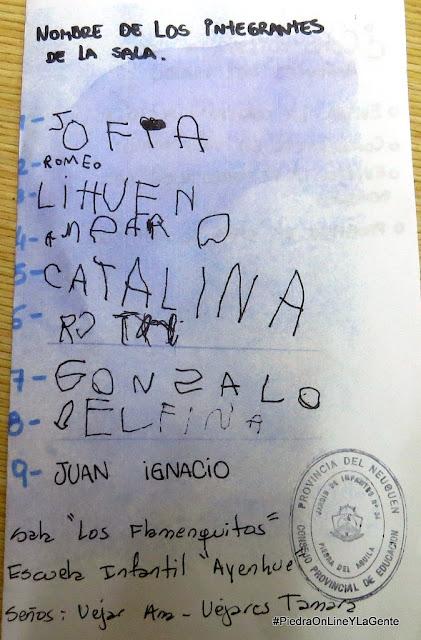 NOMBRE DE LOS INTEGRANTES
DE LA SALA.
1- JOFIA
2- ROMEO
3- LIHUEN
4- AMPARO
5- CATALINA
6-
7- GONZALO
8- DELFINA
9- JUAN IGNACIO
Sala "Los Flamenquitos"
Escuela Infantil "Ayenhue
Seños: Vejar Ana - Vejares Tamara
PROVINCIA DEL NEUQUEN
JARDIN DE INFANTES Nº 34
PIEDRA DEL AGUILA
CONSEJO PROVINCIAL DE EDUCACION
#PiedraOnLineYLaGente